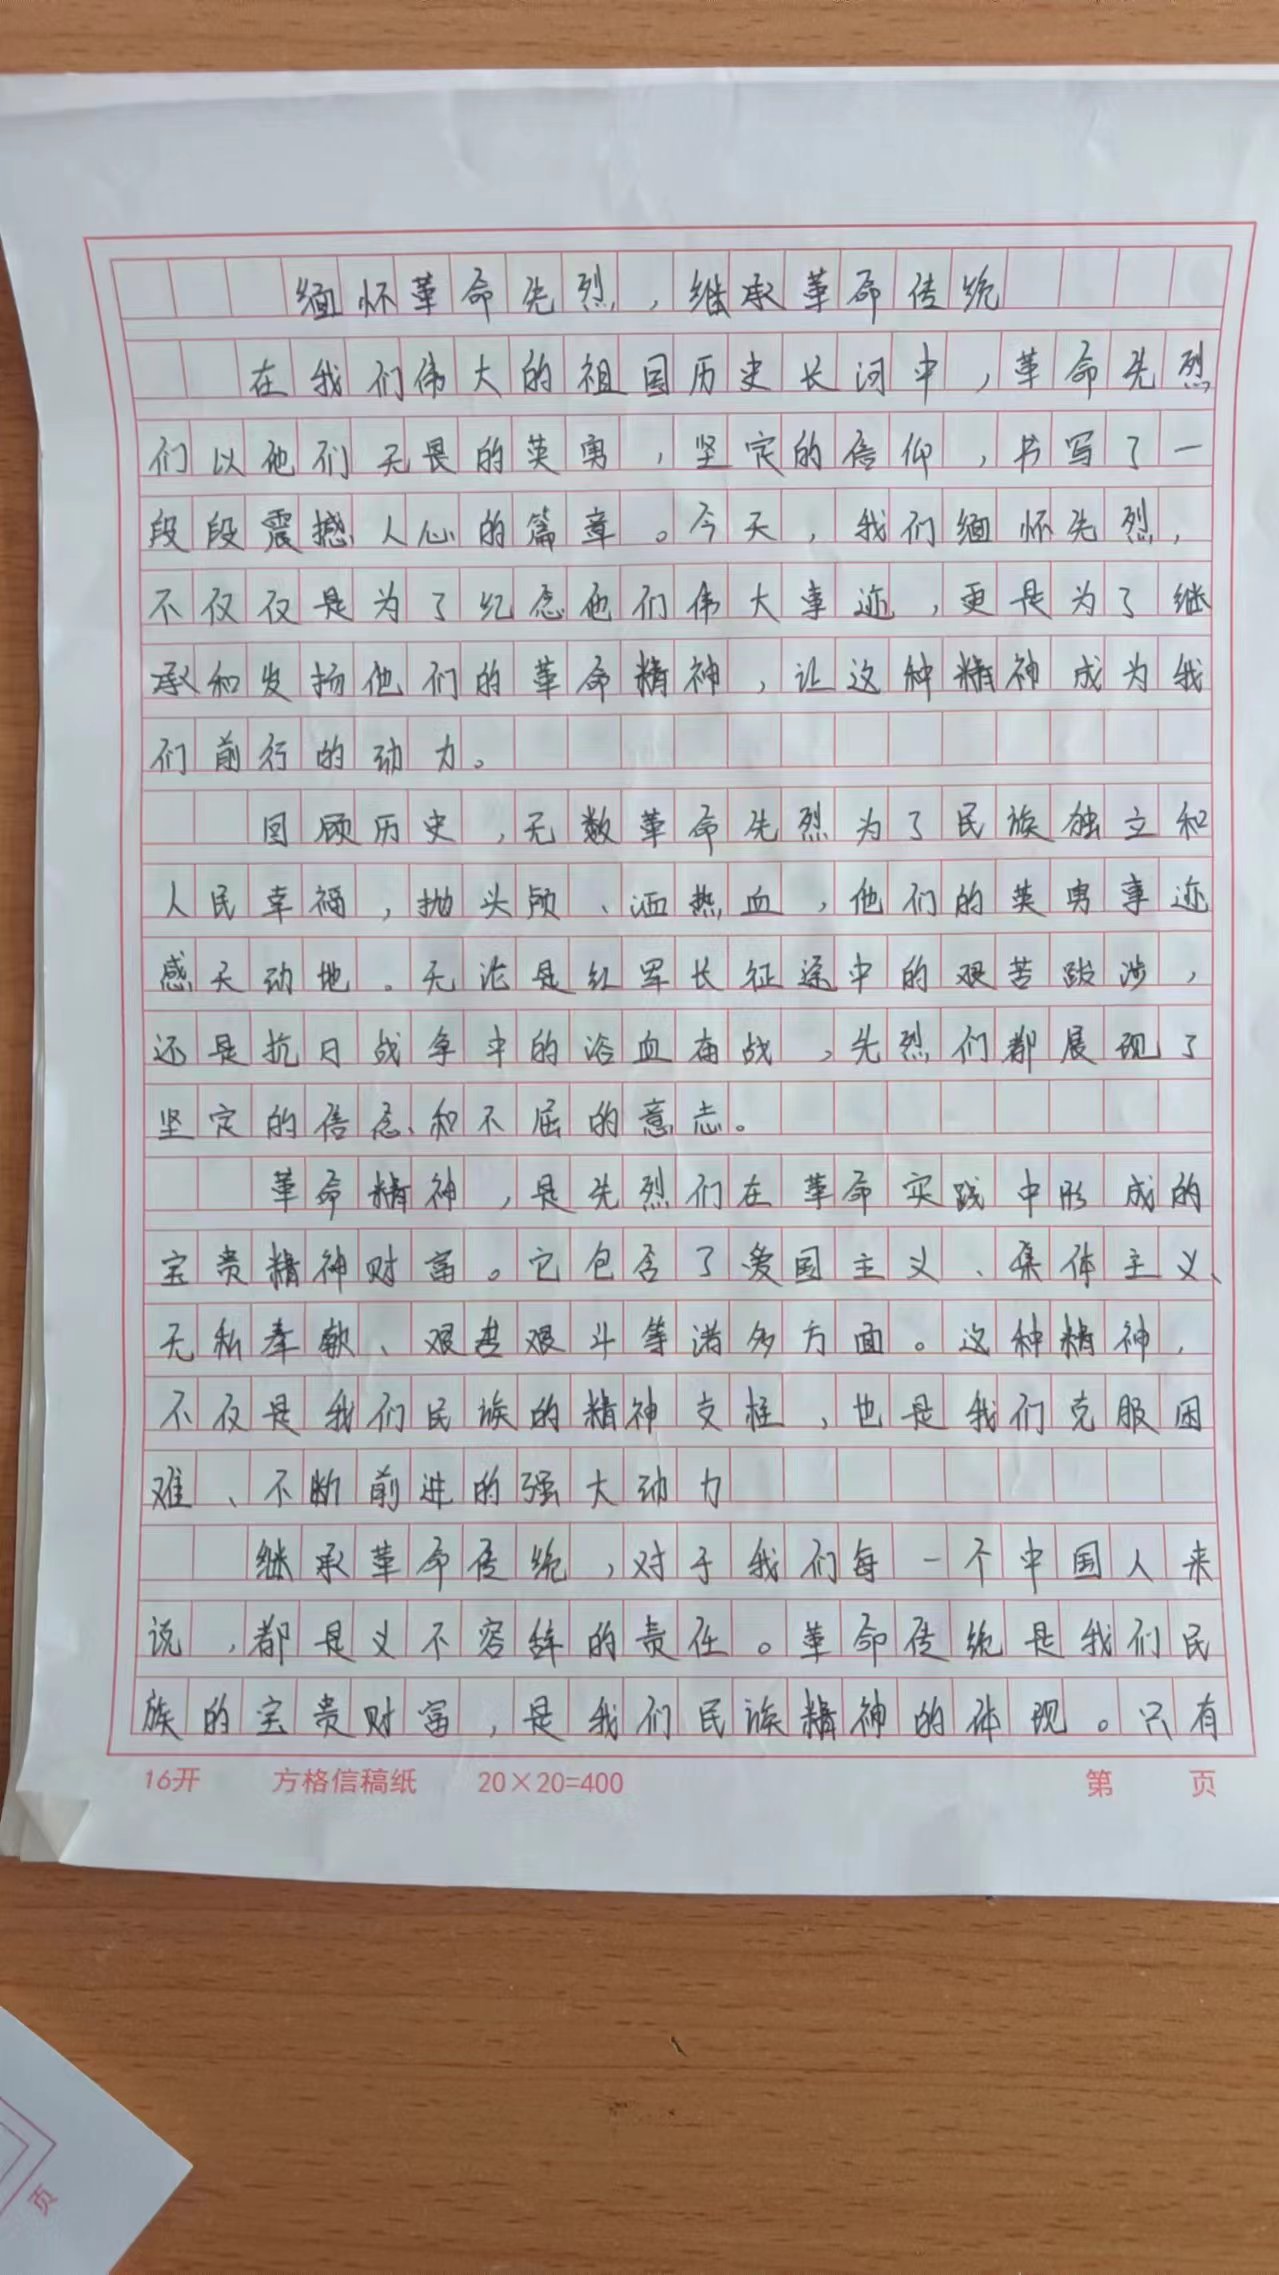 缅怀革命先烈，继承革命传统
在我们伟大的祖国历史长河中，革命先烈
们以他们无畏的英勇，坚定的信仰，书写了一
段段震撼人心的篇章。今天，我们缅怀先烈，
不仅仅是为了纪念他们伟大事迹，更是为了继
承和发扬他们的革命精神，让这种精神成为我
们前行的动力。
回顾历史，无数革命先烈为了民族独立和
人民幸福，抛头颅、洒热血，他们的英勇事迹
感天动地。无论是红军长征途中的艰苦跋涉，
还是抗日战争中的浴血奋战，先烈们都展现了
坚定的信念和不屈的意志。
革命精神，是先烈们在革命实践中形成的
宝贵精神财富。它包含了爱国主义、集体主义、
无私奉献、艰苦艰斗等诸多方面。这种精神，
不仅是我们民族的精神支柱，也是我们克服困
难、不断前进的强大动力
继承革命传统，对于我们每一个中国人来
说，都是义不容辞的责任。革命传统是我们民
族的宝贵财富，是我们民族精神的体现。只有
16开 方格信稿纸 20×20=400 第 页
页